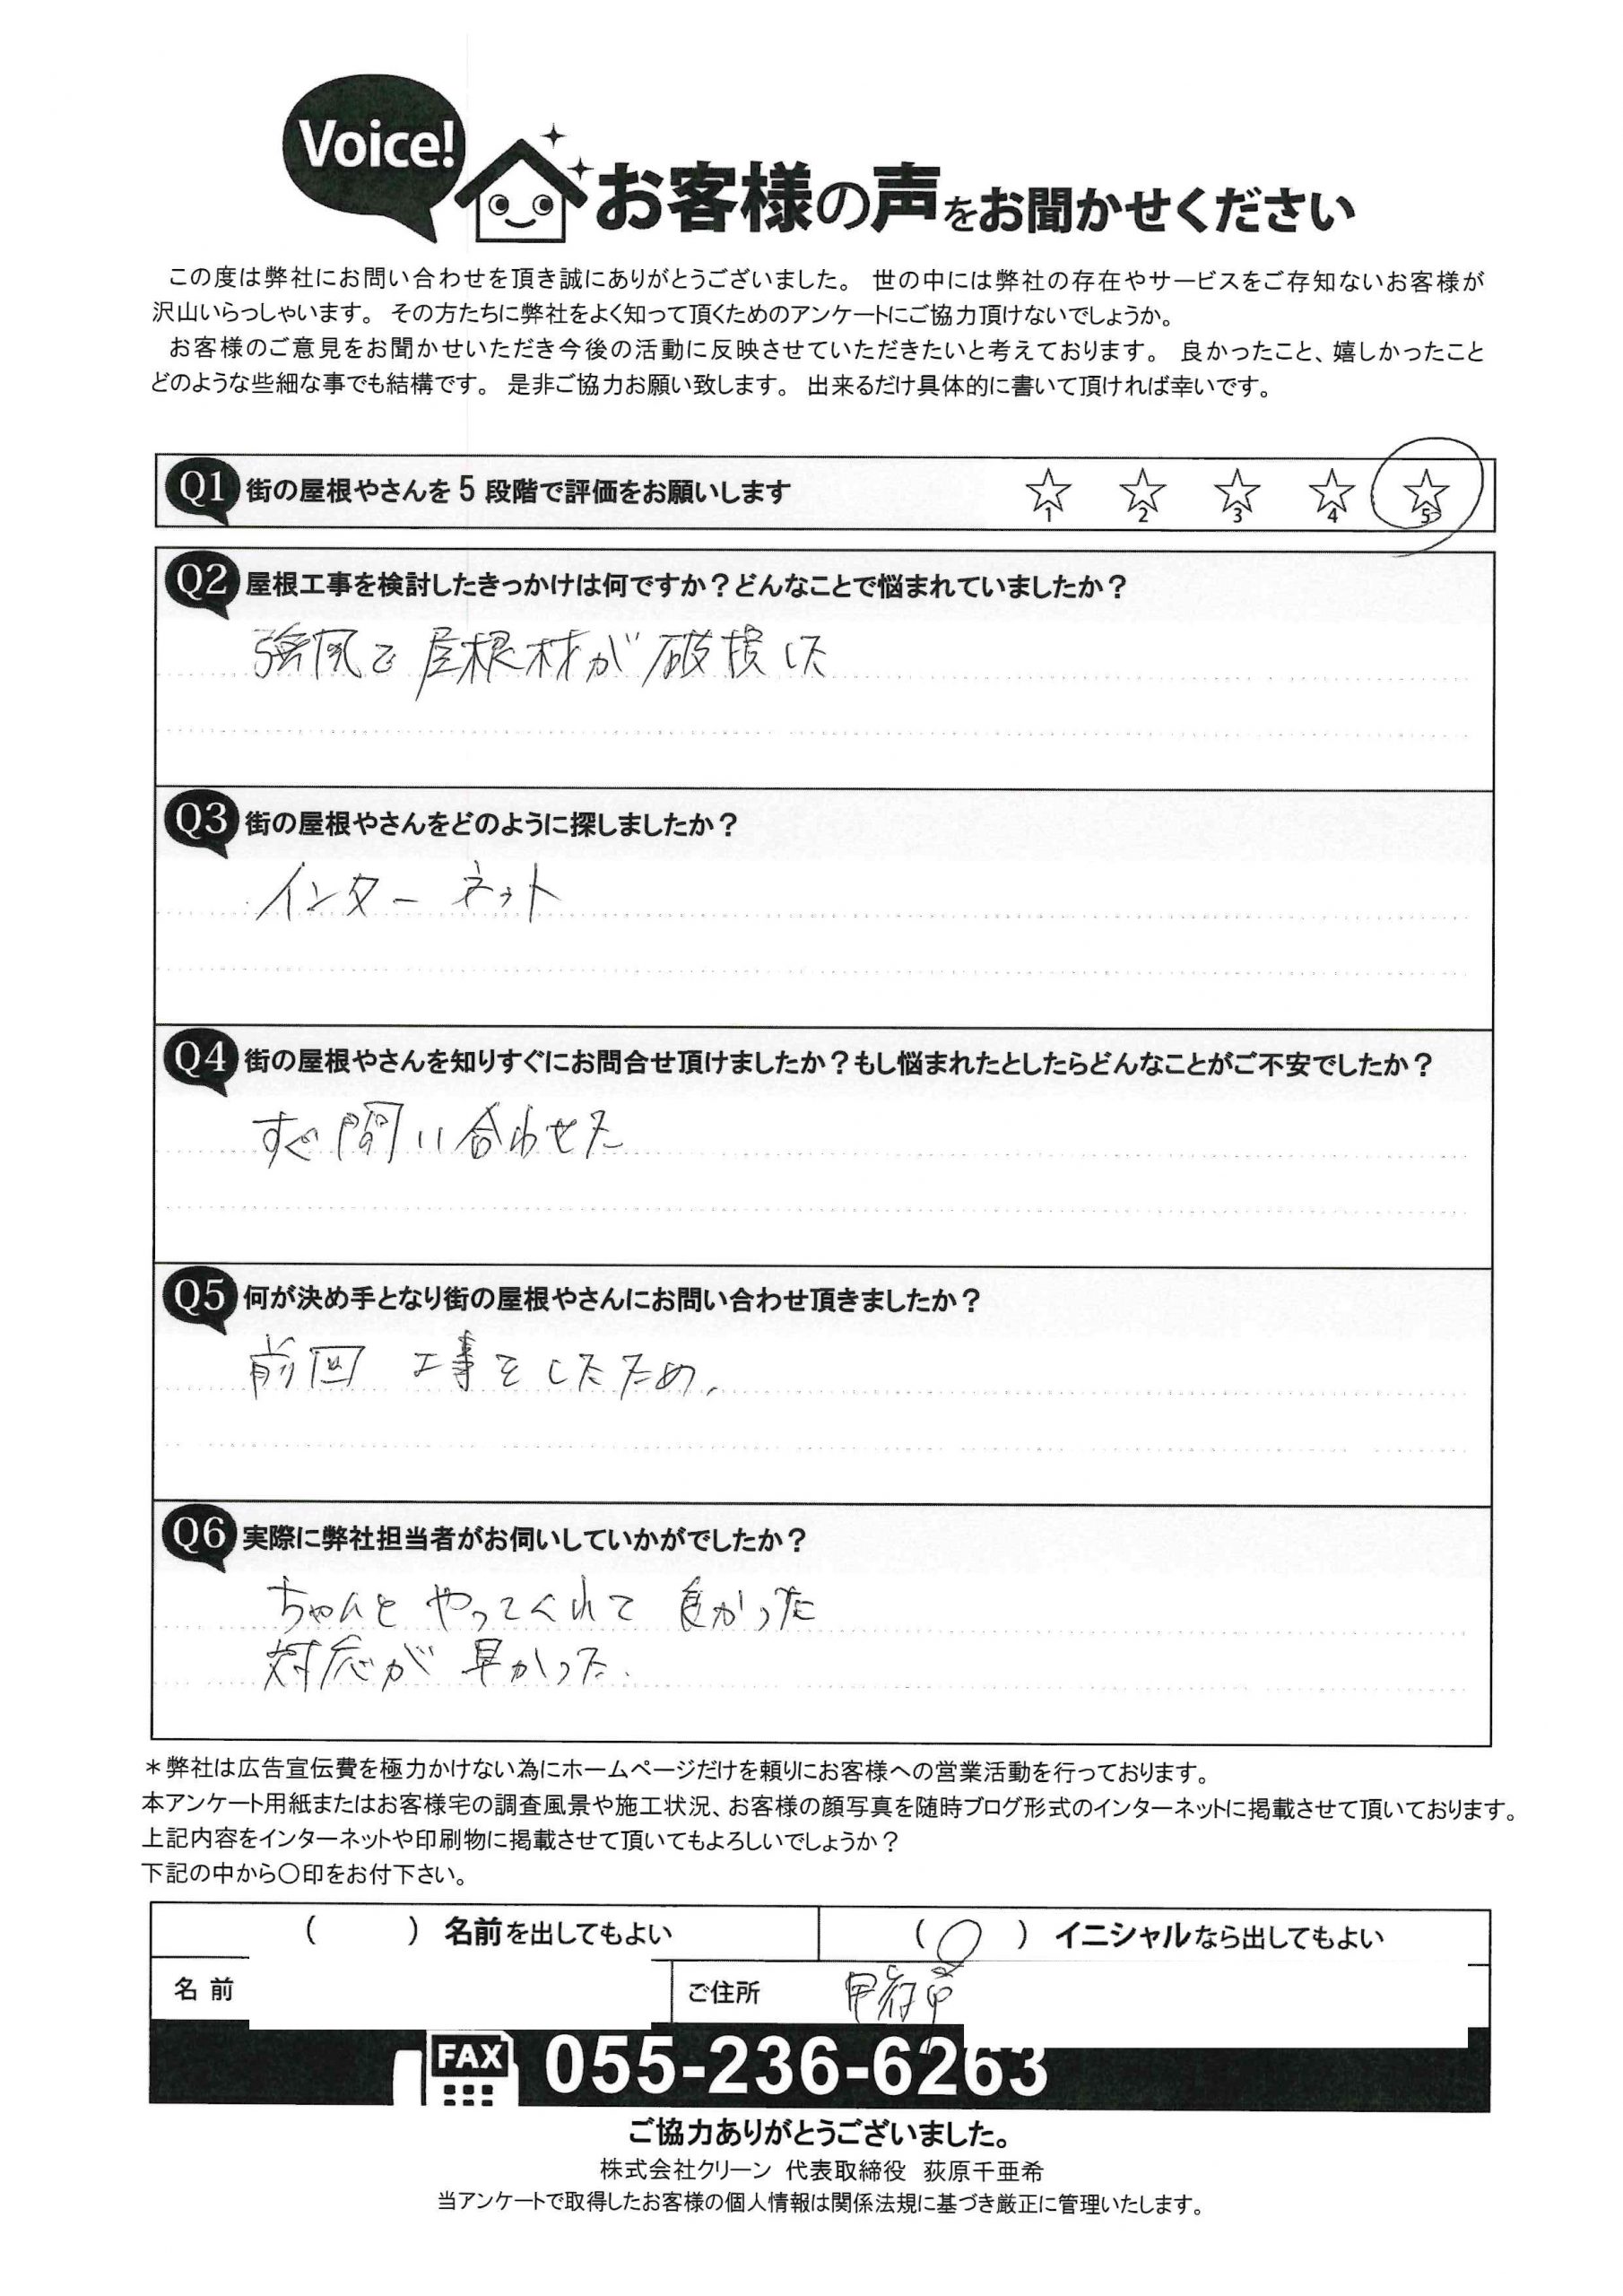 Voice!
お客様の声をお聞かせください
この度は弊社にお問い合わせを頂き誠にありがとうございました。 世の中には弊社の存在やサービスをご存知ないお客様が
沢山いらっしゃいます。 その方たちに弊社をよく知って頂くためのアンケートにご協力頂けないでしょうか。
お客様のご意見をお聞かせいただき今後の活動に反映させていただきたいと考えております。 良かったこと、嬉しかったこと
どのような些細な事でも結構です。 是非ご協力お願い致します。 出来るだけ具体的に書いて頂ければ幸いです。
Q1 街の屋根やさんを 5 段階で評価をお願いします ☆1 ☆2 ☆3 ☆4 ☆5
Q2 屋根工事を検討したきっかけは何ですか？どんなことで悩まれていましたか？
強風で屋根材が破損した
Q3 街の屋根やさんをどのように探しましたか？
インターネット
Q4 街の屋根やさんを知りすぐにお問合せ頂けましたか？もし悩まれたとしたらどんなことがご不安でしたか？
すぐ問い合わせた
Q5 何が決め手となり街の屋根やさんにお問い合わせ頂きましたか？
前回 工事をしたため、
Q6 実際に弊社担当者がお伺いしていかがでしたか？
ちゃんとやってくれて良かった
対応が早かった。
＊弊社は広告宣伝費を極力かけない為にホームページだけを頼りにお客様への営業活動を行っております。
本アンケート用紙またはお客様宅の調査風景や施工状況、お客様の顔写真を随時ブログ形式のインターネットに掲載させて頂いております。
上記内容をインターネットや印刷物に掲載させて頂いてもよろしいでしょうか？
下記の中から〇印をお付下さい。
（　　　）名前を出してもよい （〇）イニシャルなら出してもよい
名 前 ご住所 甲府市
FAX 055-236-6263
ご協力ありがとうございました。
株式会社クリーン 代表取締役 荻原千亜希
当アンケートで取得したお客様の個人情報は関係法規に基づき厳正に管理いたします。